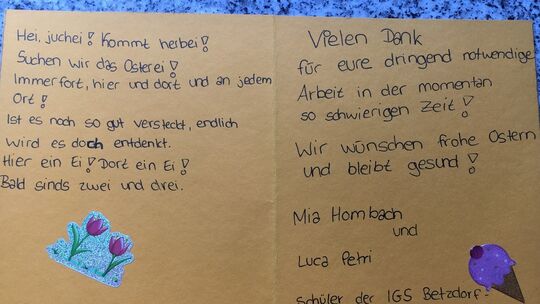 Hei, juchei! Kommt herbei!
Suchen wir das Osterei!
Immerfort, hier und dort und an jedem
Ort!
Ist es noch so gut versteckt, endlich
wird es doch entdenkt.
Hier ein Ei! Dort ein Ei!
Bald sinds zwei und drei.
Vielen Dank
für eure dringend notwendige
Arbeit in der momentan
so schwierigen Zeit!
Wir wünschen frohe Ostern
und bleibt gesund!
Mia Hombach
und
Luca Petri
Schüler der IGS Betzdorf